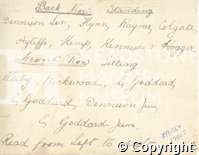 Back Row Standing
Dennison Sen, Flynn, Raynes, Colgate
Ayliffe, Kemp, Kennison & Hogga
Front Row Sitting
Raby, Pickwood, G Goddard,
G Goddard, Dennison Jun,
G Goddard Junr.
Read from Left to
EARLY